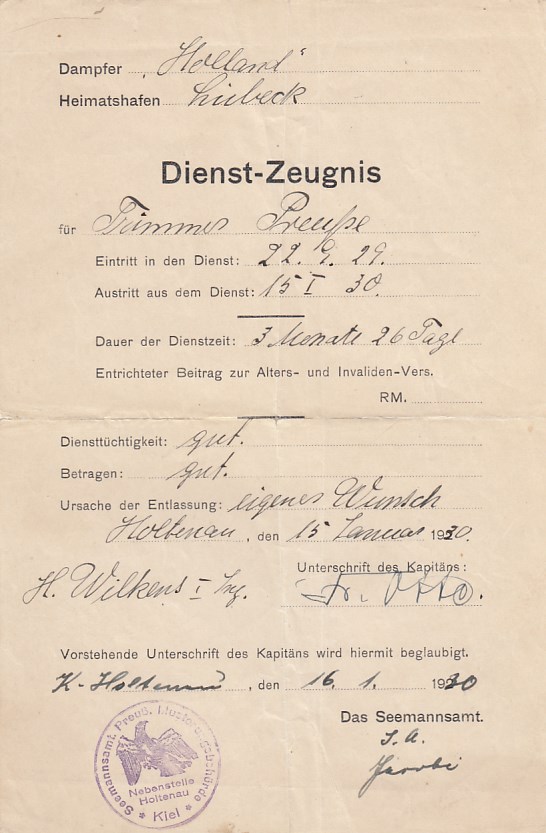 Dampfer „Holland“
Heimatshafen Lübeck
Dienst-Zeugnis
für Trimmer Preuße
Eintritt in den Dienst: 22. 9. 29.
Austritt aus dem Dienst: 15 I 30.
Dauer der Dienstzeit: 3 Monate 26 Tage
Entrichteter Beitrag zur Alters- und Invaliden-Vers.
RM.
Diensttüchtigkeit: gut.
Betragen: gut.
Ursache der Entlassung: eigener Wunsch
Holtenau, den 15 Januar 1930.
Unterschrift des Kapitäns:
H. Wilkens I Ing. Fr. Otto.
Vorstehende Unterschrift des Kapitäns wird hiermit beglaubigt.
K-Holtenau, den 16. 1. 1930
Das Seemannsamt.
I. A.
Jacobi
Seemannsamt. Preuß. Musterungsbehörde
Nebenstelle
Holtenau
* Kiel *